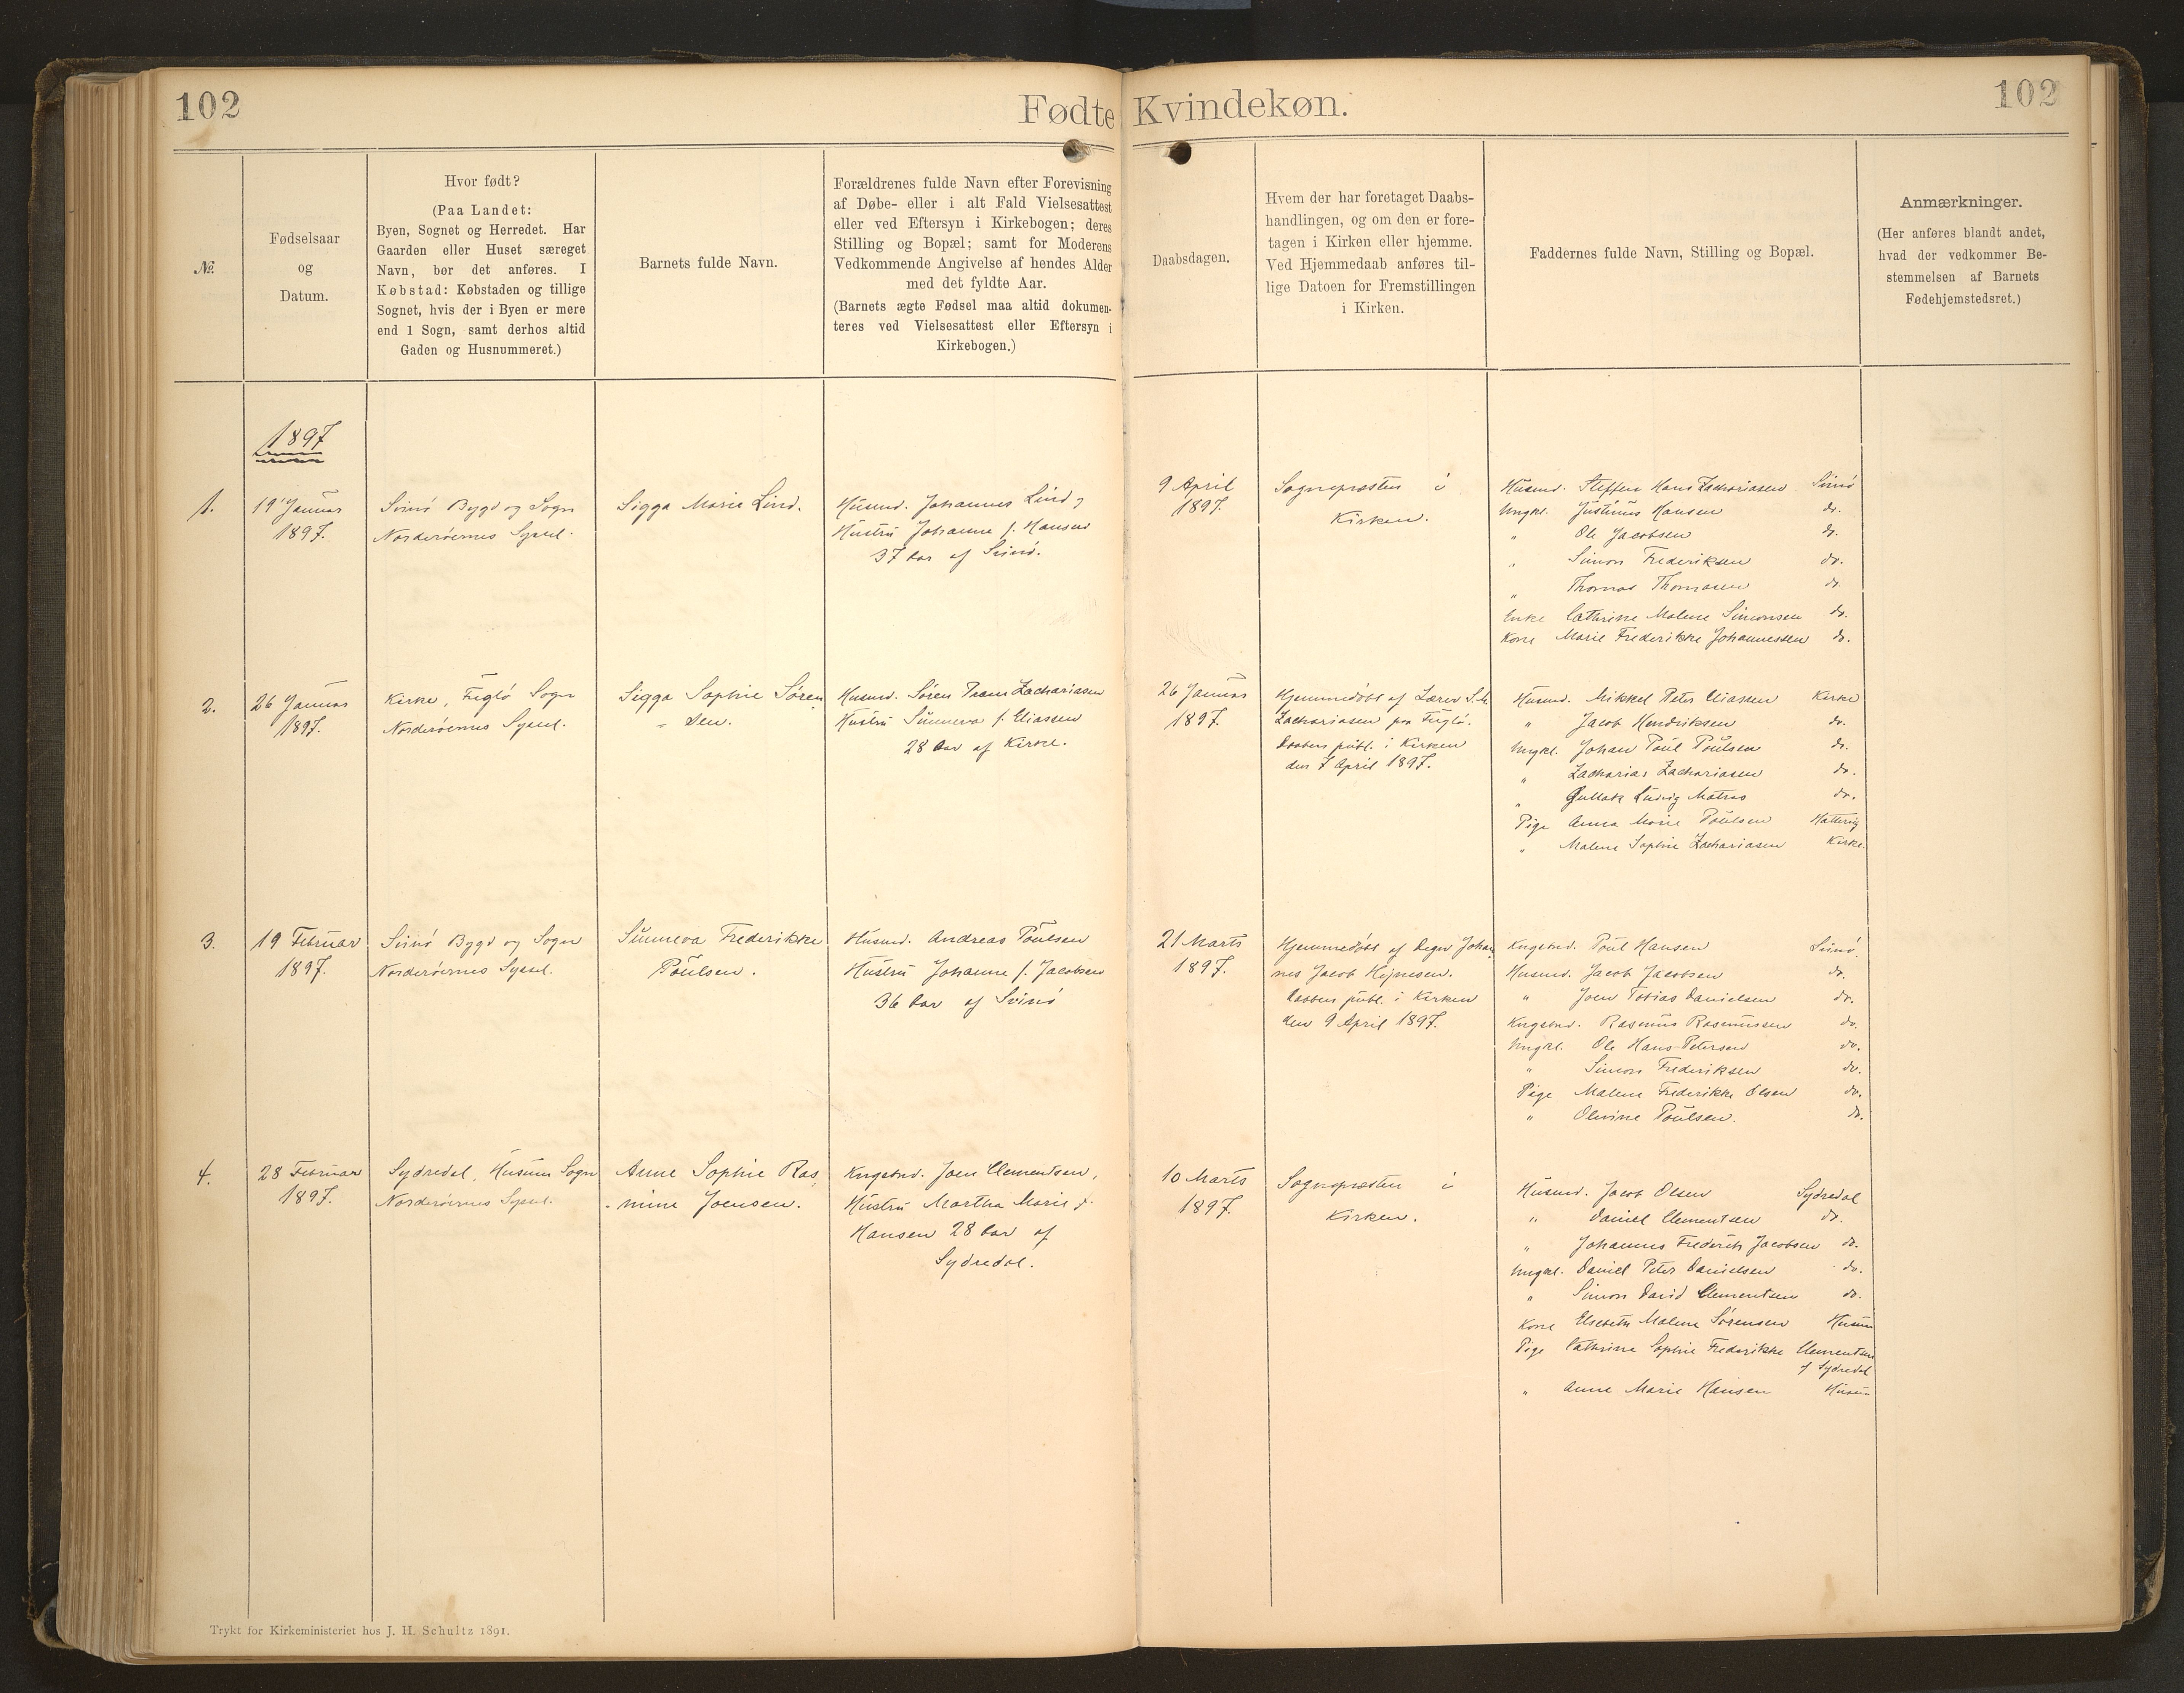 102
Fødte Kvindekøn.
102
№.
Fødselsaar
og
Datum.
Hvor født?
(Paa Landet:
Byen, Sognet og Herredet. Har
Gaarden eller Huset særeget
Navn, bør det anføres. I
Købstad: Købstaden og tillige
Sognet, hvis der i Byen er mere
end 1 Sogn, samt derhos altid
Gaden og Husnummeret.)
Barnets fulde Navn.
Forældrenes fulde Navn efter Forevisning
af Døbe- eller i alt Fald Vielsesattest
eller ved Eftersyn i Kirkebogen; deres
Stilling og Bopæl; samt for Moderens
Vedkommende Angivelse af hendes Alder
med det fyldte Aar.
(Barnets ægte Fødsel maa altid dokumen-
teres ved Vielsesattest eller Eftersyn i
Kirkebogen.)
Daabsdagen.
Hvem der har foretaget Daabs-
handlingen, og om den er fore-
tagen i Kirken eller hjemme.
Ved Hjemmedaab anføres til-
lige Datoen for Fremstillingen
i Kirken.
Faddernes fulde Navn, Stilling og Bopæl.
Anmærkninger.
(Her anføres blandt andet,
hvad der vedkommer Be-
stemmelsen af Barnets
Fødehjemstedsret.)
1897
1.
19 Januar
1897.
Svinö Bygd og Sogn
Norderöernes Syssel.
Sigga Marie Lind.
Husmd. Johannes Lind og
Hustru Johanne f. Hansen
37 Aar af Svinö.
9 April
1897.
Sognepræsten i
Kirken.
Husmd. Steffen Hans Zachariasen Svinö
Ungkl. Justinus Hansen do.
" Ole Jacobsen do.
" Simon Frederiksen do.
" Thomas Thomasen do.
Enke Cathrine Malene Simonsen do.
Kone Marie Frederikke Johannessen do.
2.
26 Januar
1897.
Kirke, Fuglö Sogn
Norderöernes Syssel.
Sigga Sophie Sören
- sen.
Husmd. Sören Zachariasen
Hustru Sunneva f. Eliassen
28 Aar af Kirke.
26 Januar
1897.
Hjemmedöbt af Lærer
Zachariasen paa Fuglö.
Daaben publ. i Kirken
den 7 April 1897.
Husmd. Mikkel Peter Eliassen Kirke
" Jacob Hendriksen do.
Ungkl. Johan Poul Poulsen do.
" Zacharias Zachariasen do.
" Ludvig Matras do.
Pige Anna Marie Poulsen Hattervig
" Malene Sophie Zachariasen Kirke.
3.
19 Februar
1897.
Svinö Bygd og Sogn
Norderöernes Syssel.
Sunneva Frederikke
Poulsen.
Husmd. Andreas Poulsen
Hustru Johanne f. Jacobsen
36 Aar af Svinö
21 Marts
1897.
Hjemmedöbt af Degn Johan
nes Jacob Hejnesen.
Daaben publ. i Kirken
den 9 April 1897.
Kngsbnd. Poul Hansen Svinö.
Husmd. Jacob Jacobsen do.
" Joen Tobias Danielsen do.
Kngsbnd. Rasmus Rasmussen do.
Ungkl. Ole Hans Petersen do.
" Simon Frederiksen do.
Pige Malene Frederikke Olsen do.
" Olevine Poulsen. do.
4.
28 Februar
1897.
Sydredal, Husum Sogn
Norderöernes Syssel.
Anne Sophie Ras
- mine Joensen.
Kngsbnd. Joen Clementsen,
Hustru Martha Marie f.
Hansen 28 Aar af
Sydredal.
10 Marts
1897.
Sognepræsten i
Kirken.
Husmd. Jacob Olsen Sydredal
" Daniel Clementsen do.
" Johannes Frederik Jacobsen do.
Ungkl. Daniel Peter Danielsen do.
" Simon David Clementsen do.
Kone Elsebeth Malene Sörensen Husum
Pige Cathrine Sophie Frederikke Clementsen
af Sydredal
" Anne Marie Hansen Husum
Trykt for Kirkeministeriet hos J. H. Schultz 1891.